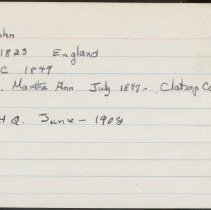 ohn
1823 England
C 1847
. Martha Ann July 1847- Clatsop Co
H Q. June - 1908